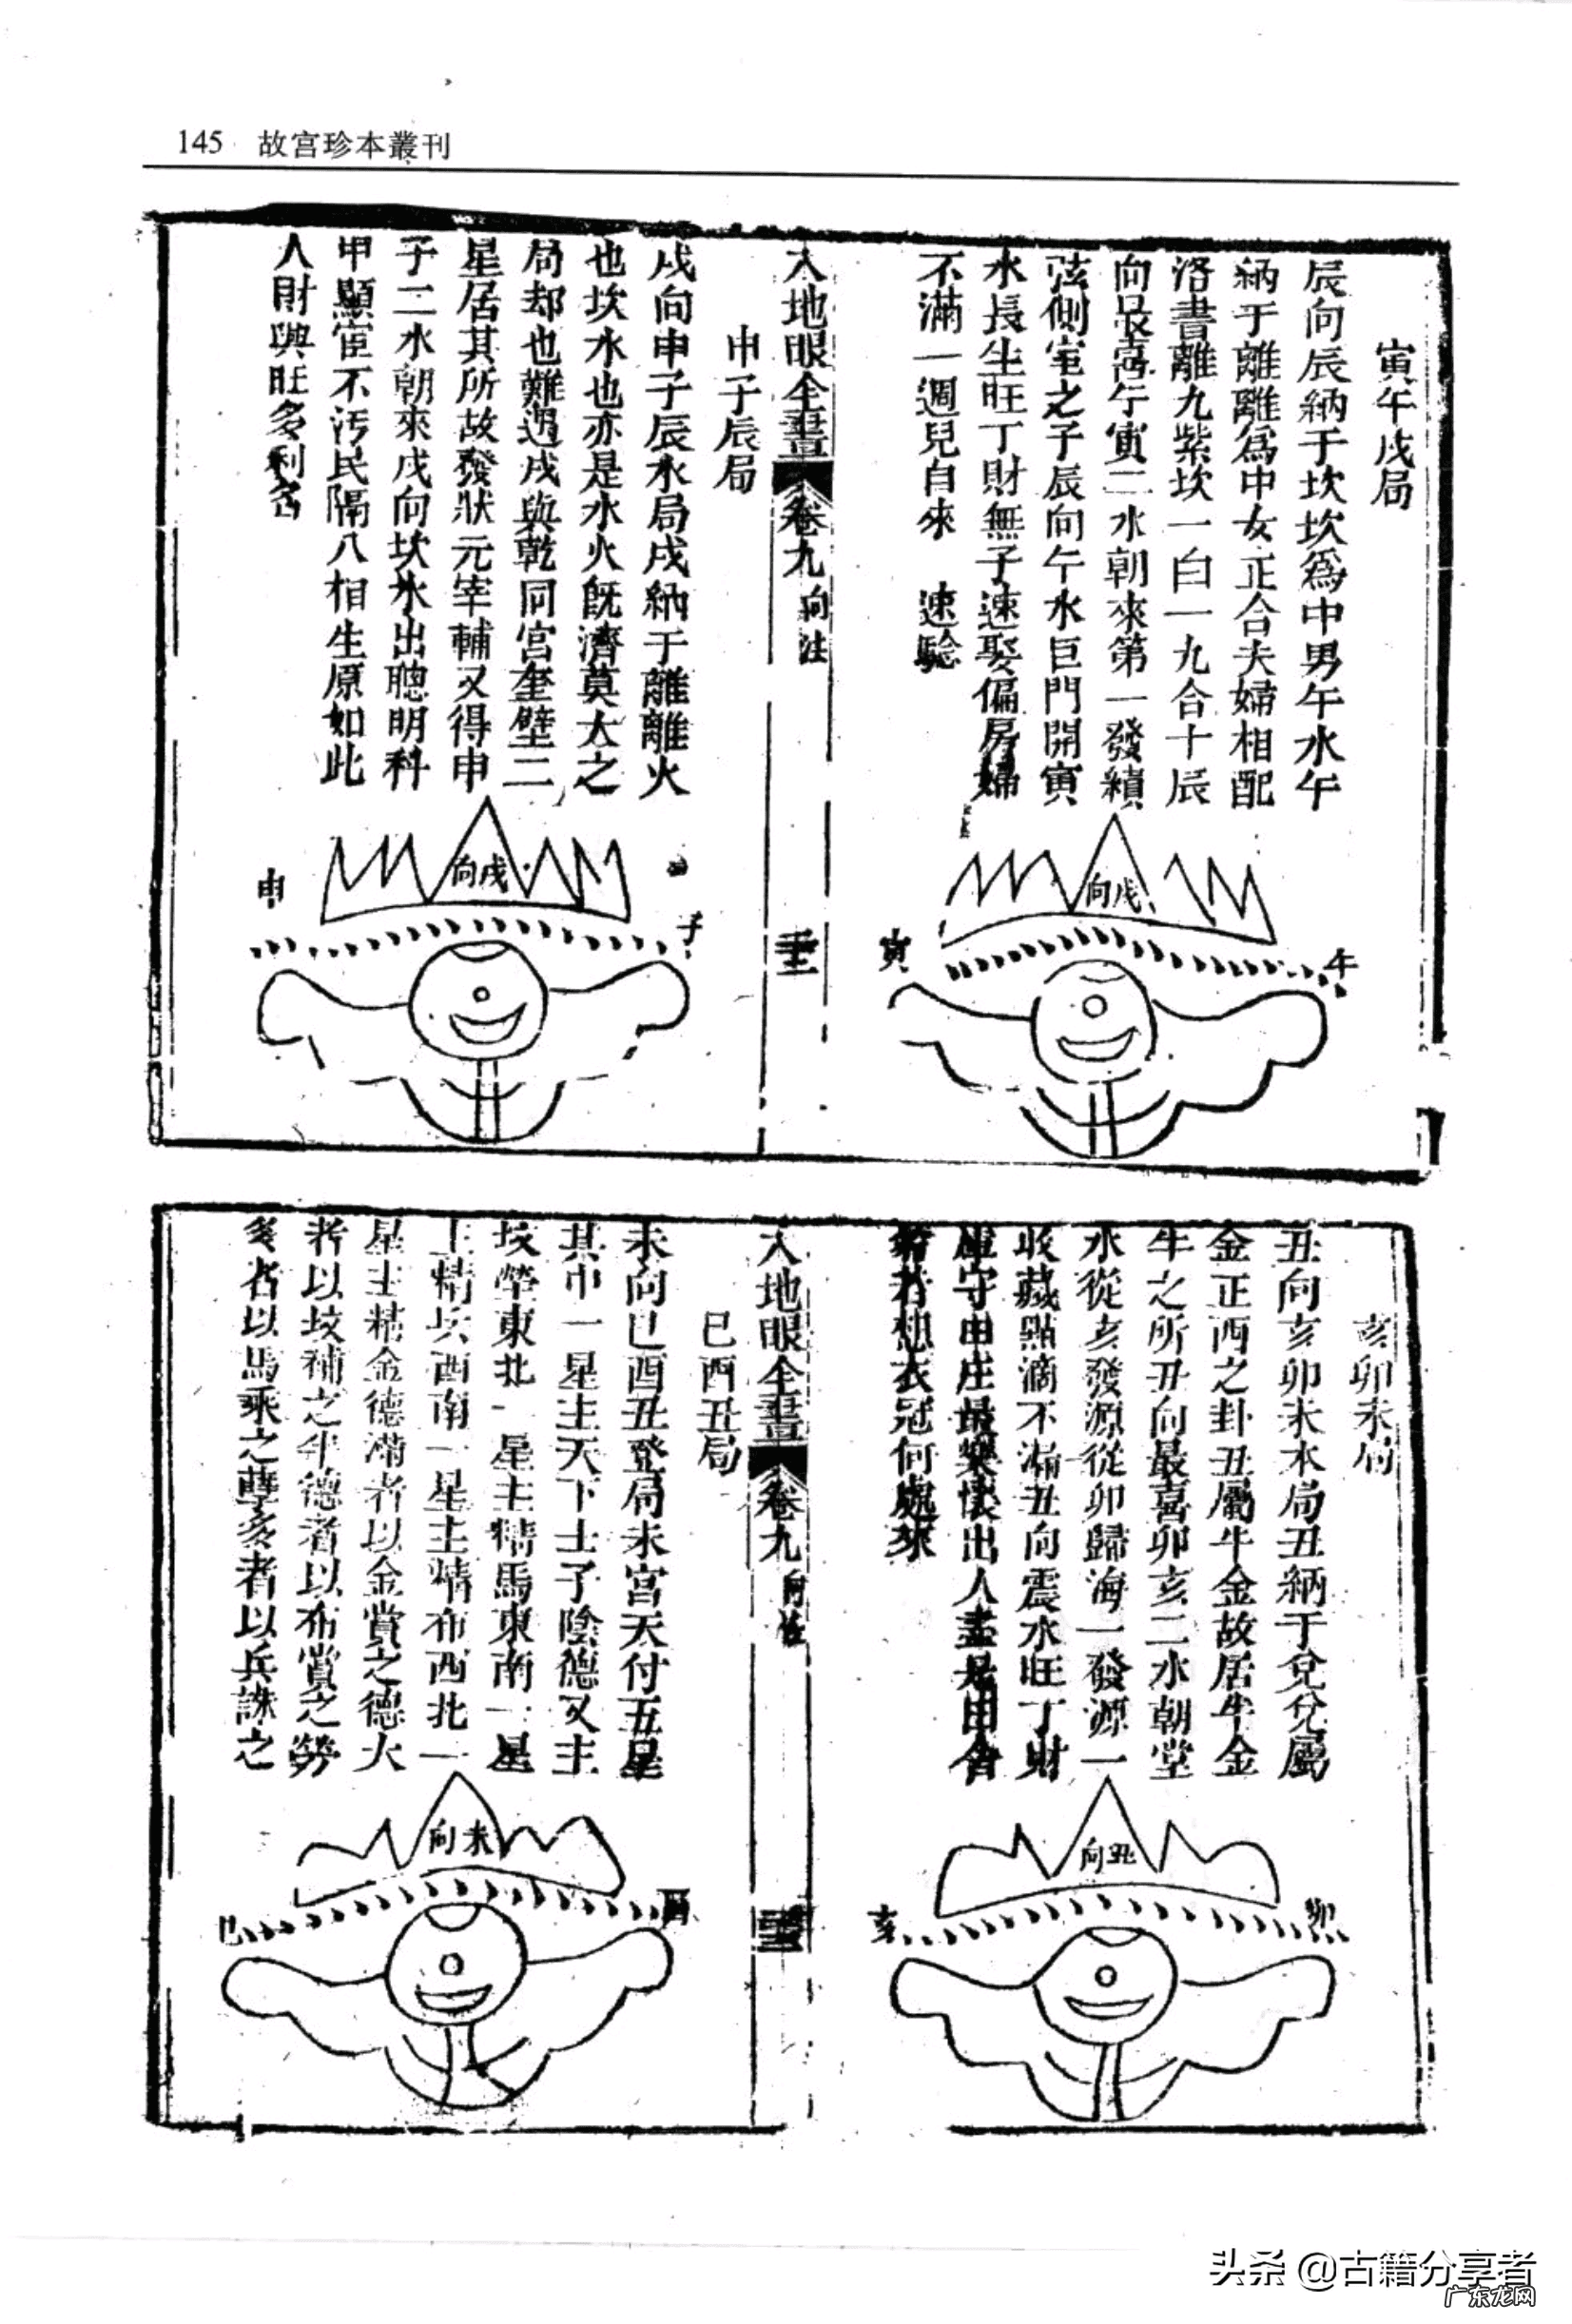 145 故宮珍本叢刊
寅午戌局
辰向辰納于坎坎爲中男午水午
納于離離爲中女正合夫婦相配
洛書離九紫坎一白一九合十辰
向最喜午寅二水朝來第一發績
弦側室之子辰向午水巨門開寅
水長生旺丁財無子速娶偏房婦
不滿一週兒自來 速驗
戌向
寅
午
入地眼全書 卷九 向法
申子辰局
戌向申子辰水局戌納于離離火
也坎水也亦是水火旣濟莫大之
局却也難遇戌與乾同宮奎壁二
星居其所故發狀元宰輔又得申
子二水朝來戌向坎水出聰明科
甲顯宦不污民隔八相生原如此
人財興旺多利名
戌向
申
子
亥卯未局
丑向亥卯未木局丑納于兌兌屬
金正西之卦丑屬牛金故居牛金
牛之所丑向最喜卯亥二水朝堂
水從亥發源從卯歸海一發源一
收藏點滴不漏丑向震水旺丁財
庫守田庄最樂懷出人盡是田舍
翁若想衣冠何處來
丑向
亥
卯
入地眼全書 卷九 向法
巳酉丑局
未向巳酉丑登局未宮天付五星
其中一星主天下士子陰德又主
坟塋東北一星主精馬東南一星
主精兵西南一星主精布西北一
星主精金德滿者以金賞之德大
者以坟補之年德者以布賞之勞
多者以馬乘之孽多者以兵誅之
未向
巳
酉
头条 @古籍分享者
广东龙网